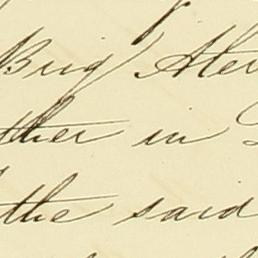 Brig
ther in
the said